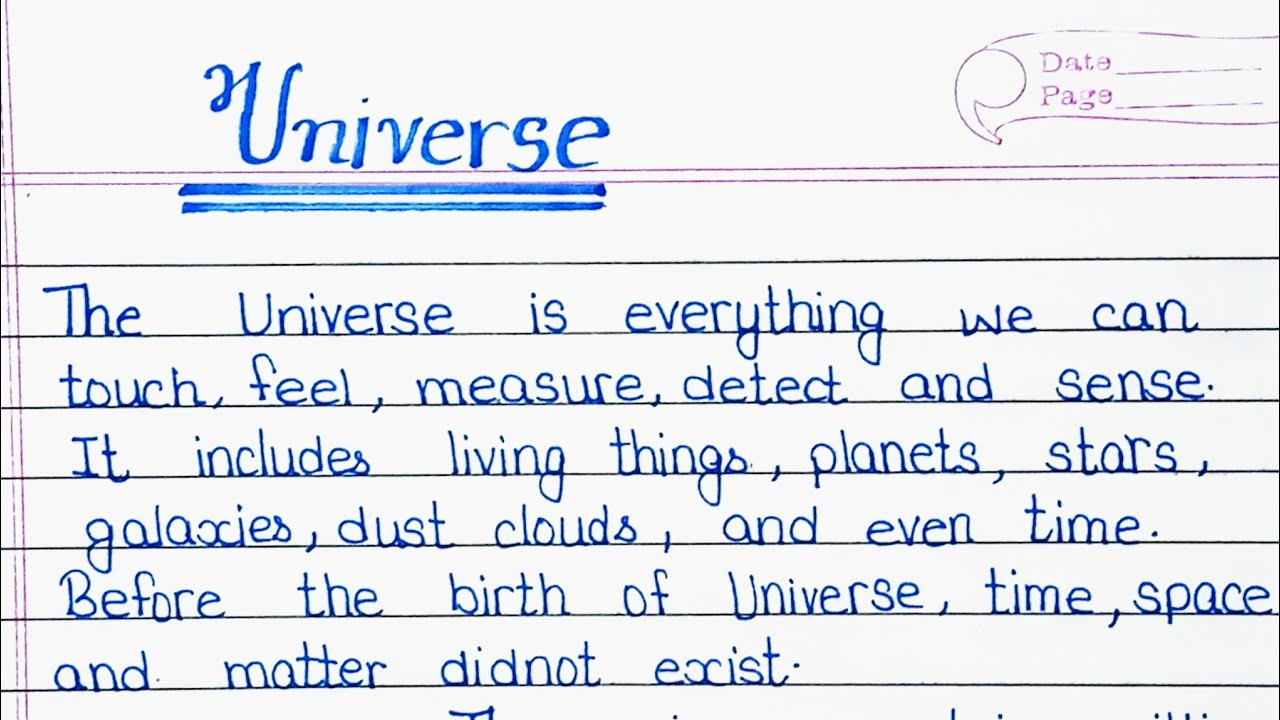 Universe
Date
Page
The Universe is everything we can
touch, feel, measure, detect and sense.
It includes living things, planets, stars,
galaxies, dust clouds, and even time.
Before the birth of Universe, time, space
and matter didnot exist.